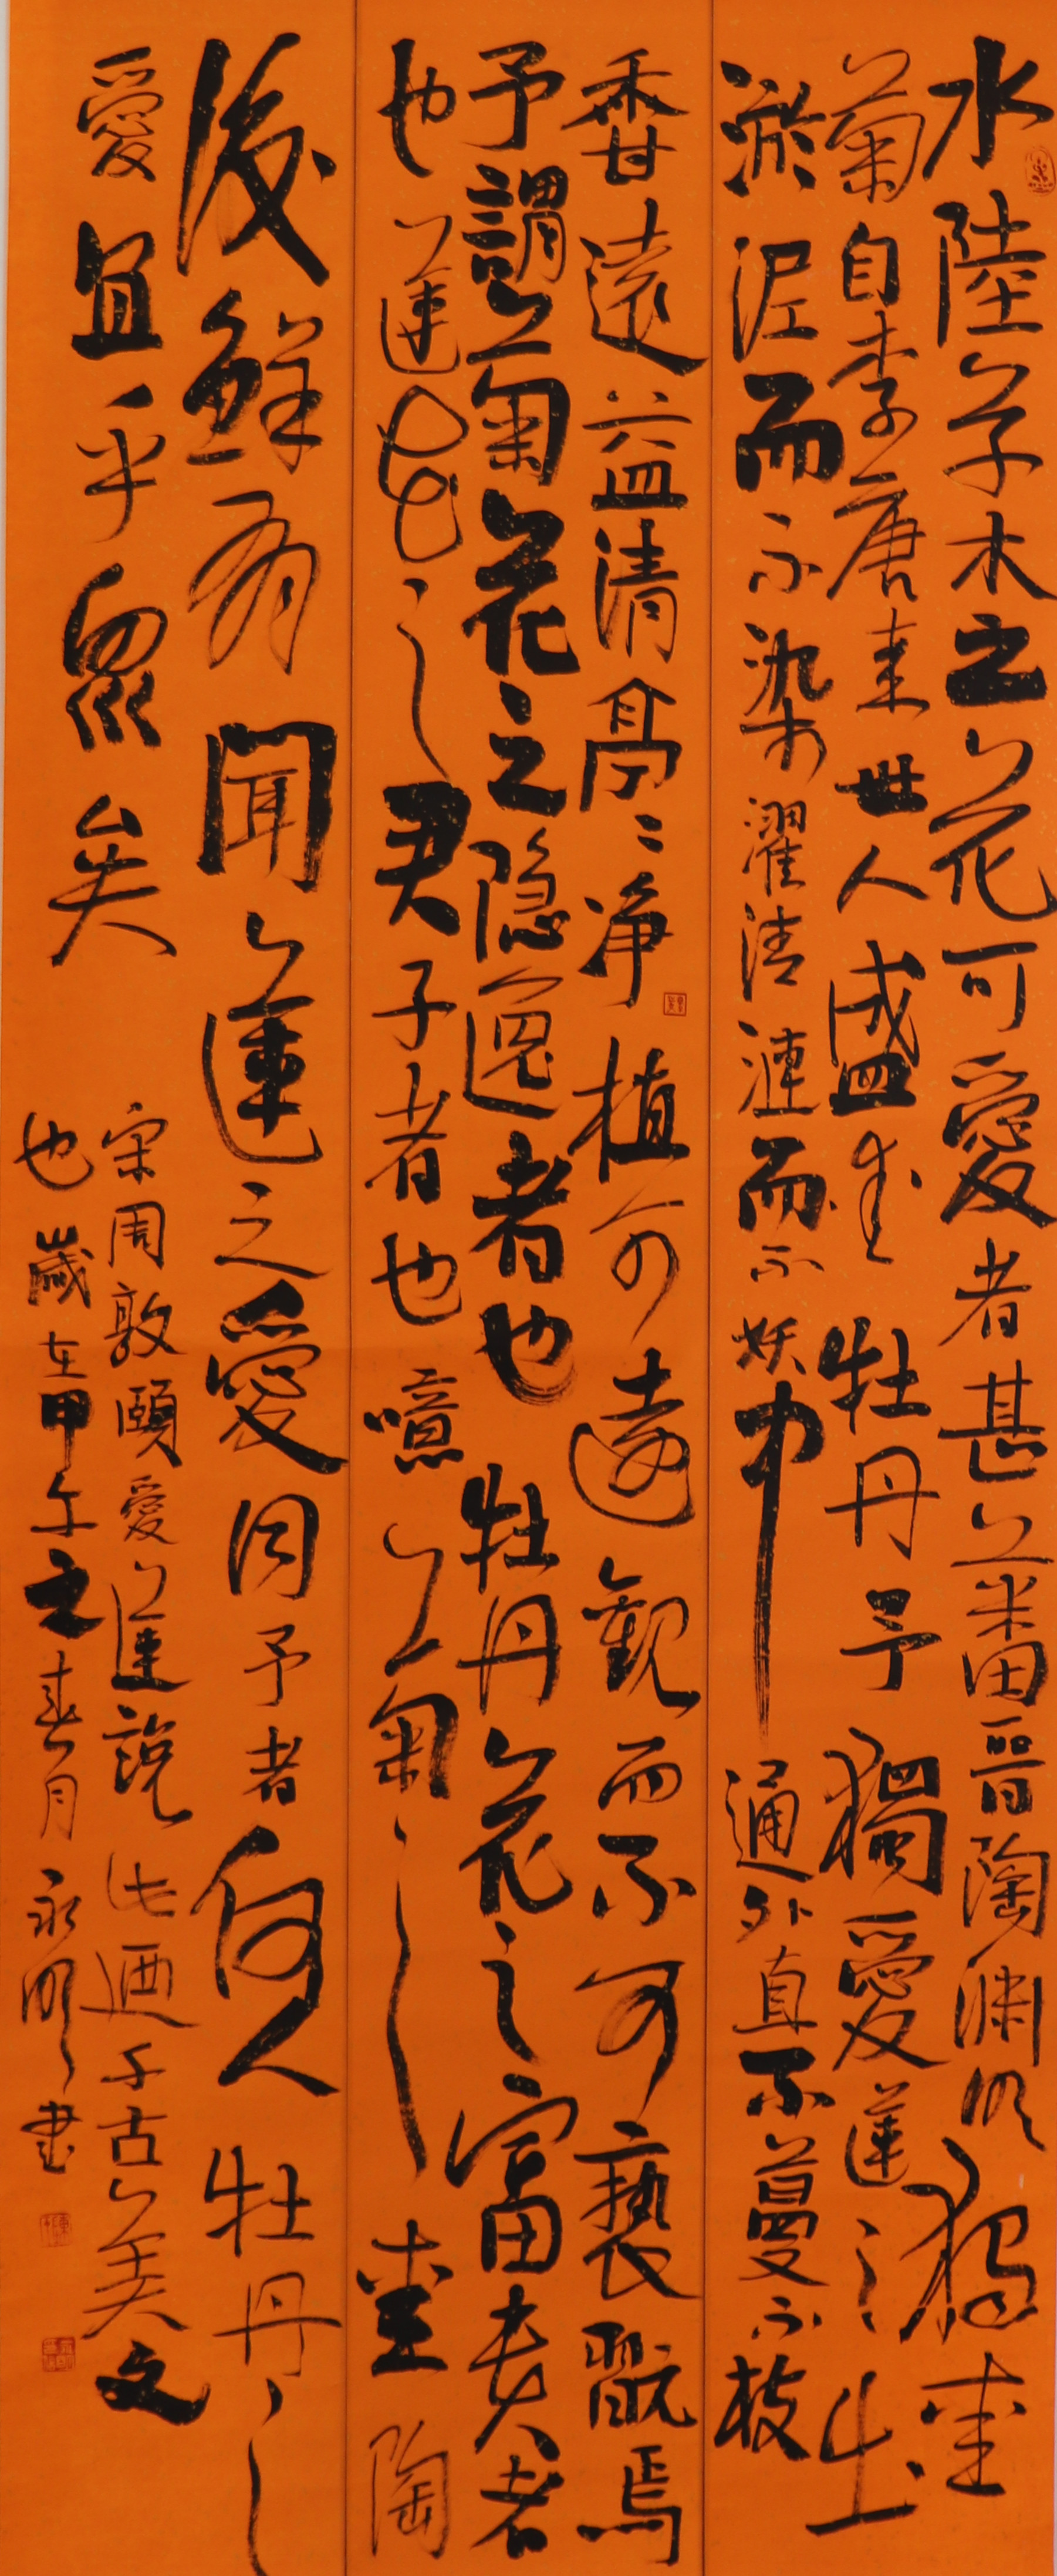 水陸草木之花可愛者甚蕃晋陶淵明獨愛
菊自李唐来世人盛愛牡丹予獨愛蓮之出
淤泥而不染濯清漣而不妖中通外直不蔓不枝
香遠益清亭々净植可遠觀而不可褻翫焉
予謂菊花之隐逸者也牡丹花之富貴者
也蓮花之君子者也噫菊之愛陶
後鮮有聞蓮之愛同予者何人牡丹之
愛宜乎眾矣
宋周敦頤愛蓮說此迺千古美文
也歲在甲午之春月永明書